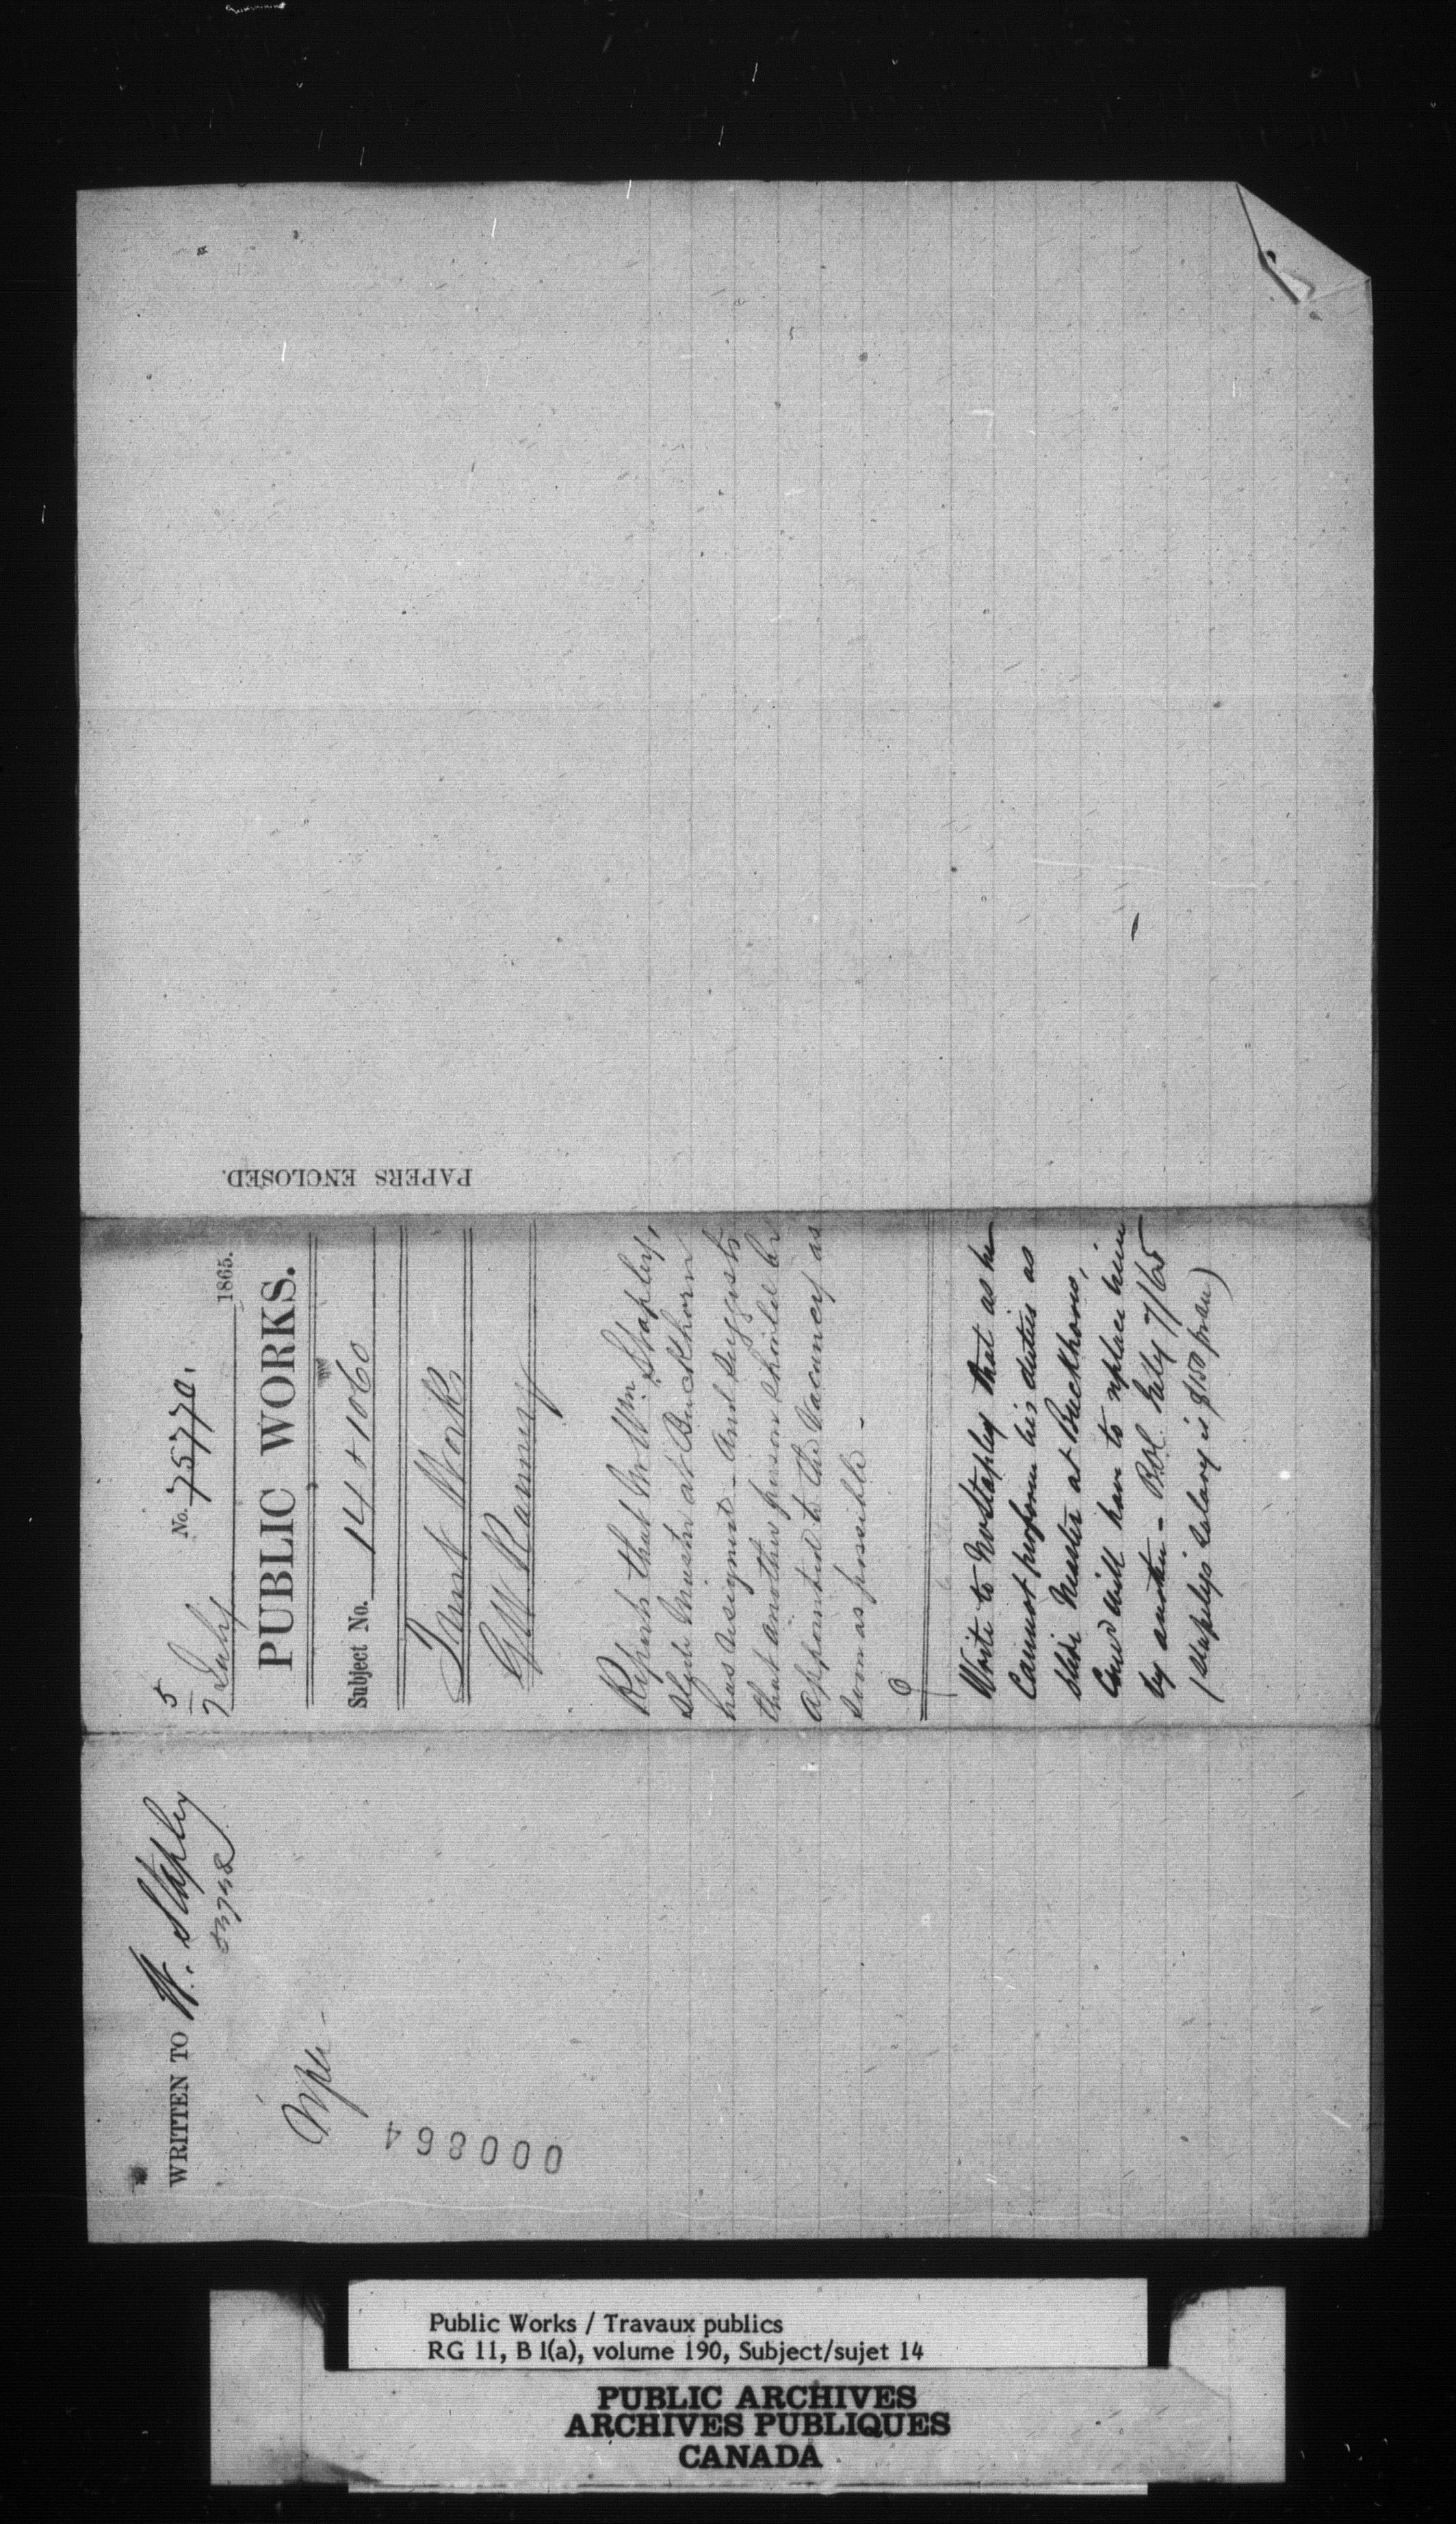 WRITTEN TO W. Stapley
000864
5
7 July 1865.
No. 75770.
PUBLIC WORKS.
Subject No. 14 & 1060
Trent Works
GW Ranney
Reports that Mr Wm. Stapley,
Slide Master at Buckhorn
has resigned - and suggests
that another person should be
appointed to the vacancy as
soon as possible -
Write to Mr Stapley that as he
Cannot perform his duties as
Slide Master at Buckhorn,
and will have to replace him
by another - July 7/65
(Stapleys salary is $150 p. an)
PAPERS ENCLOSED.
Public Works / Travaux publics
RG 11, B 1(a), volume 190, Subject/sujet 14
PUBLIC ARCHIVES
ARCHIVES PUBLIQUES
CANADA